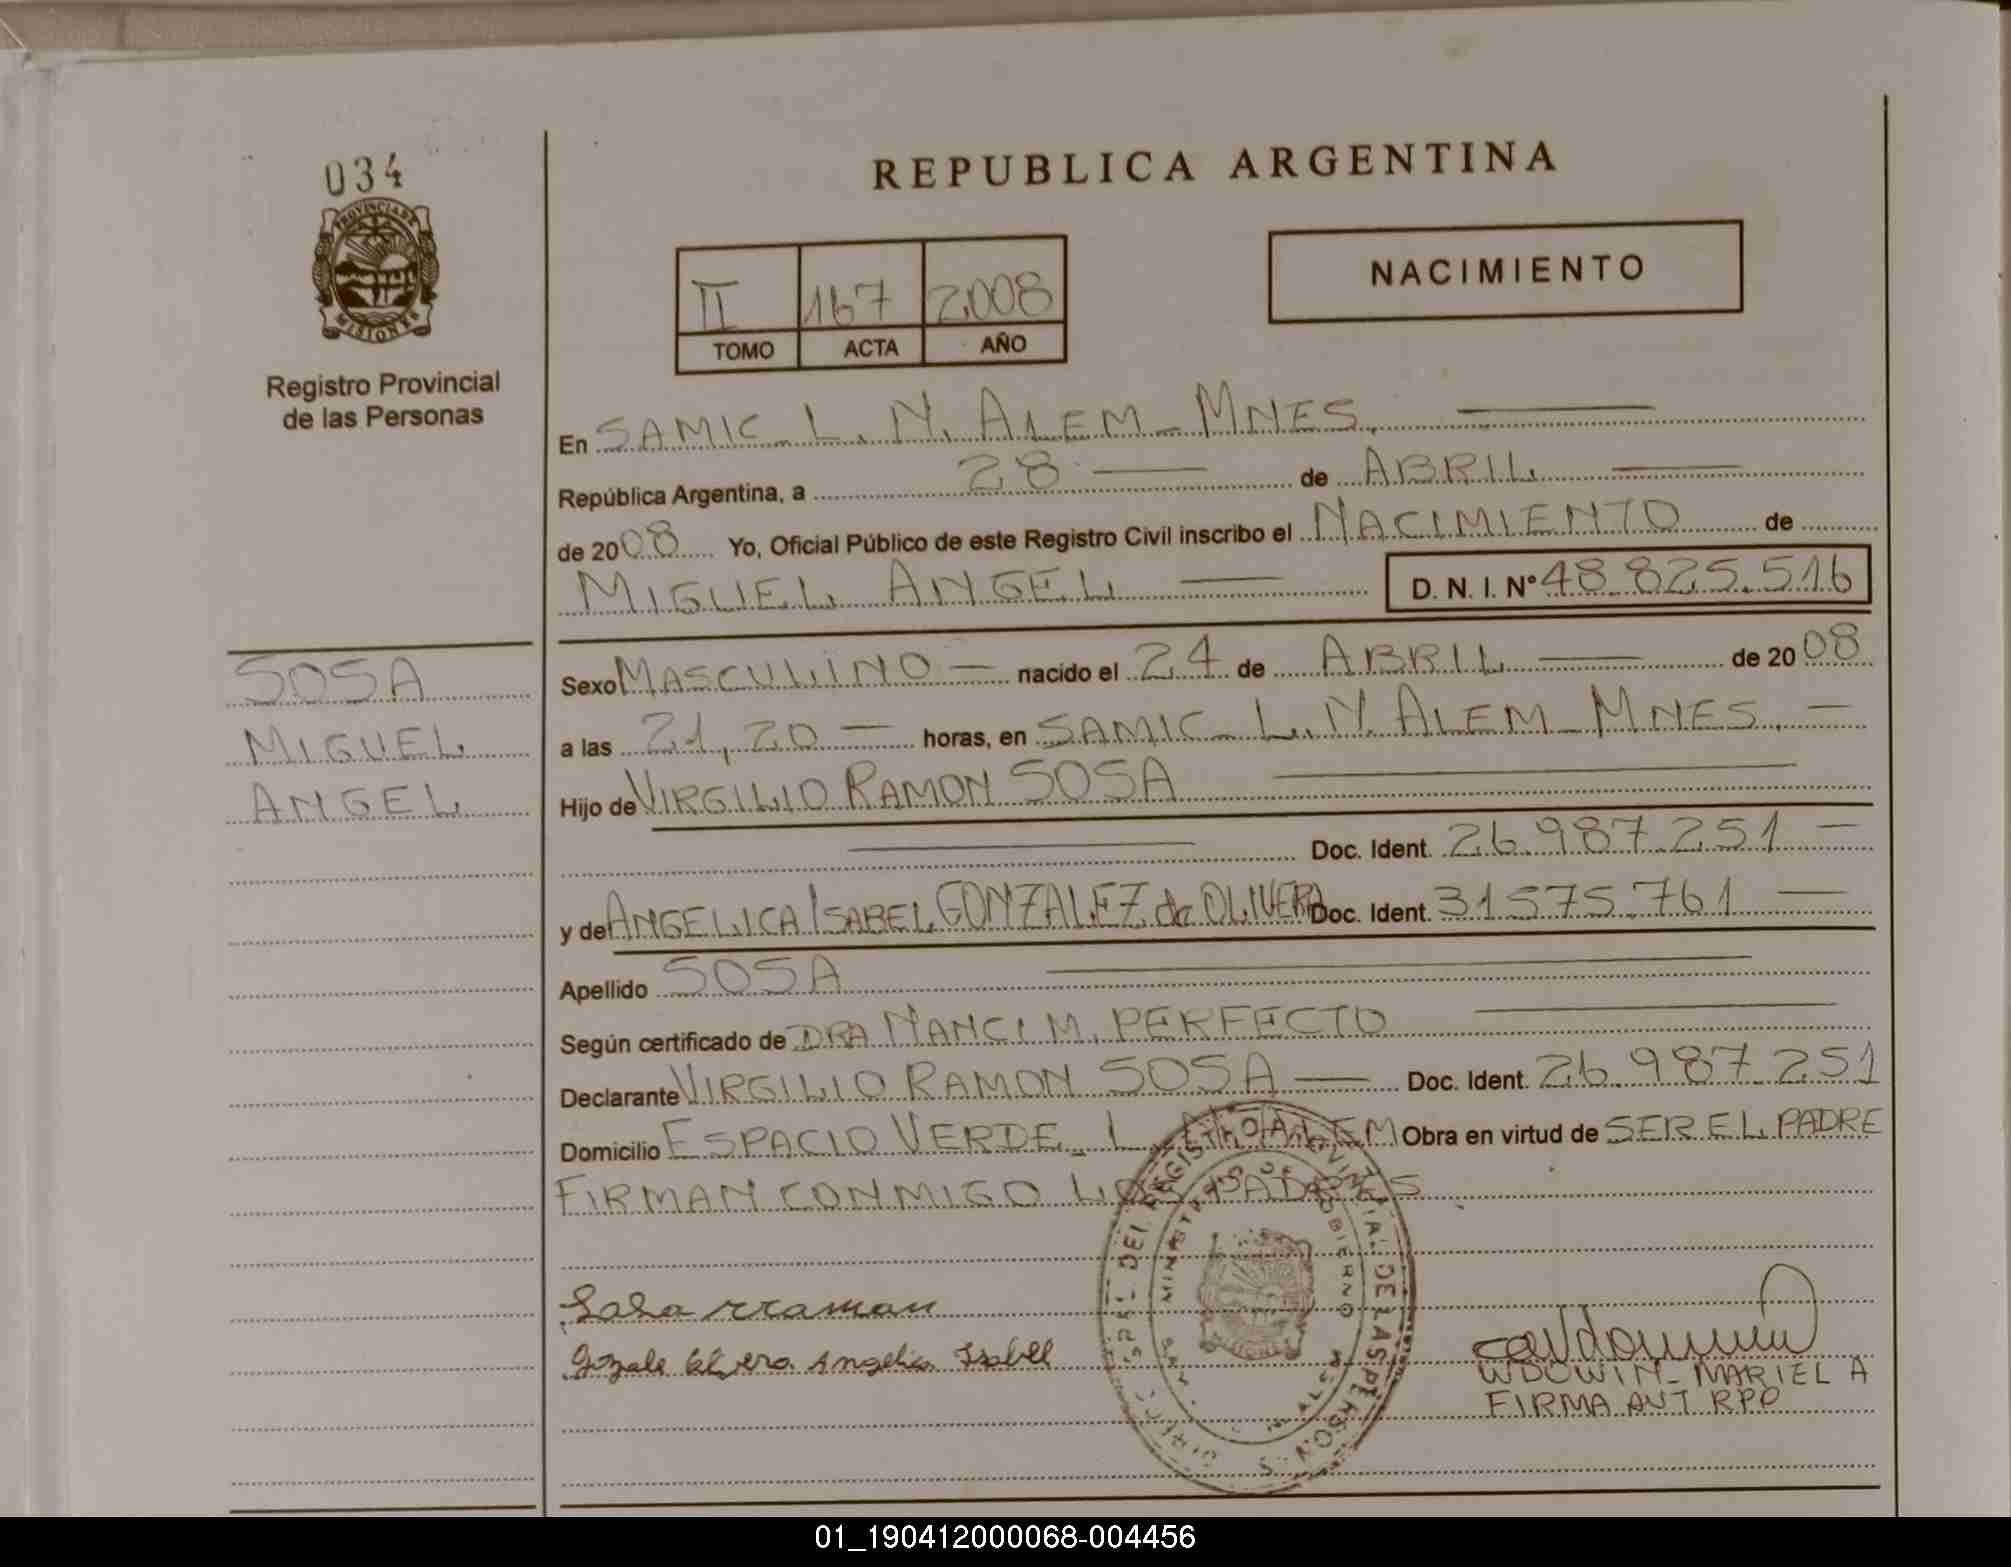 034
PROVINCIA DE
MISIONES
Registro Provincial
de las Personas
SOSA
MIGUEL
ANGEL
REPUBLICA ARGENTINA
II 167 2008
TOMO ACTA AÑO
NACIMIENTO
En SAMIC - L. N. ALEM - MNES.
República Argentina, a 28 de ABRIL
de 2008 Yo, Oficial Público de este Registro Civil inscribo el NACIMIENTO de
MIGUEL ANGEL D. N. I. Nº 48.825.516
Sexo MASCULINO nacido el 24 de ABRIL de 2008
a las 21,20 horas, en SAMIC - L. N. ALEM - MNES.
Hijo de VIRGILIO RAMON SOSA
Doc. Ident. 26.987.251
y de ANGELICA ISABEL GONZALEZ de OLIVERA Doc. Ident. 31.575.761
Apellido SOSA
Según certificado de DRA NANCI M. PERFECTO
Declarante VIRGILIO RAMON SOSA Doc. Ident. 26.987.251
Domicilio ESPACIO VERDE - L. N. ALEM Obra en virtud de SER EL PADRE
FIRMAN CONMIGO LOS PADRES
Sosa rraman
Angelica Isabel
WDOWIN - MARIEL A
FIRMA AUT RPP
01_190412000068-004456